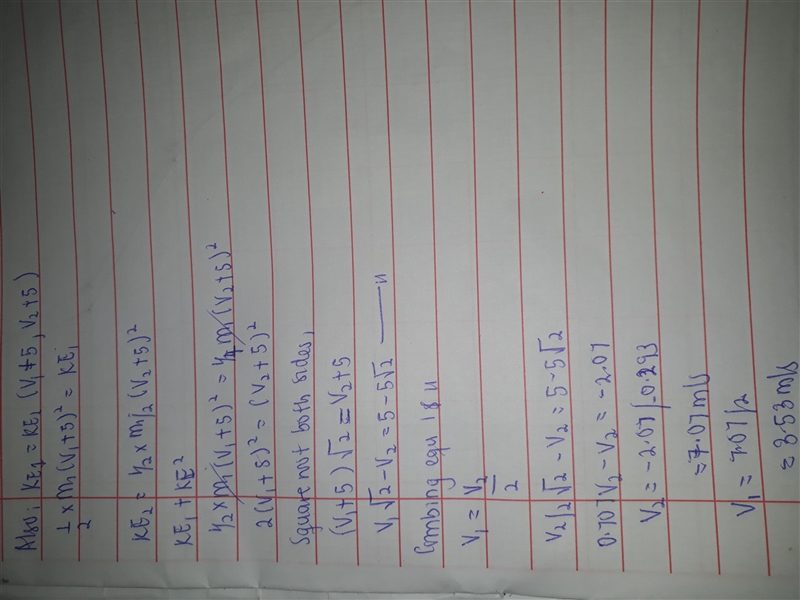 Also; KE1 = KE2 (V1+5, V2+5)
1/2 x m1(V1+5)² = KE1
KE2 = 1/2 x m1/2 (V2+5)²
KE1 + KE²
1/2 x m1(V1+5)² = 1/4 m1(V2+5)²
2(V1+5)² = (V2+5)²
Square root both sides,
(V1+5)√2 = V2+5
V1√2 - V2 = 5-5√2 —— ii
Combing equ 1 & ii
V1 = V2/2
V2/2√2 - V2 = 5-5√2
0.707V2 - V2 = -2.07
V2 = -2.07/-0.293
= 7.07m/s
V1 = 7.07/2
= 3.53m/s